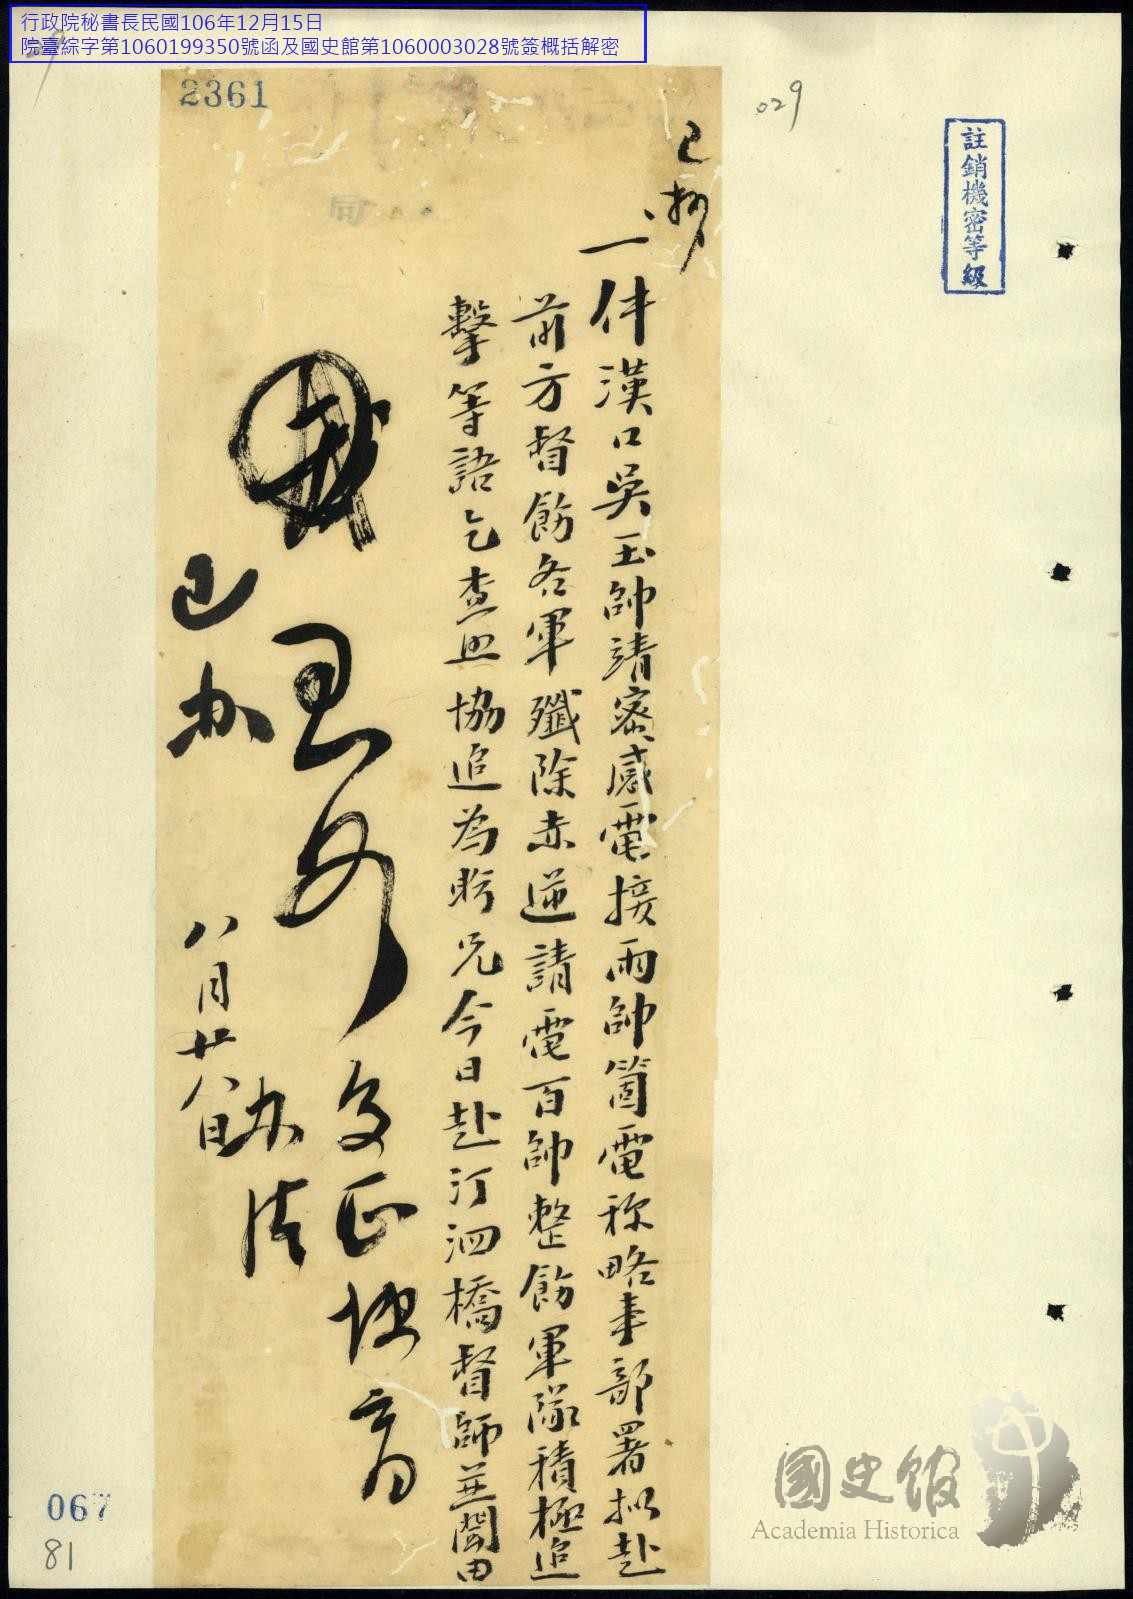 行政院秘書長民國106年12月15日
院臺綜字第1060199350號函及國史館第1060003028號簽概括解密
2361
029
註銷機密等級
已抄
一件漢口吳玉帥靖密感電接雨帥箇電称略事部署拟赴
前方督飭各軍殲除赤逆請電百帥整飭軍隊積極追
擊等語乞查照協追為盼兄今日赴汀泗橋督師並聞由
閱
办法
已办
八月廿八日
067
81
國史館
Academia Historica